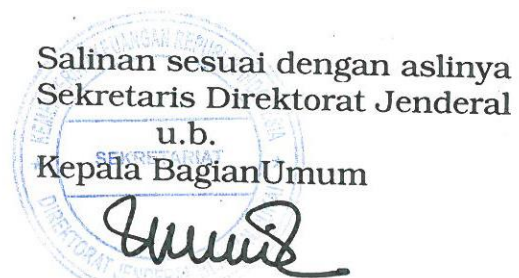 Salinan sesuai dengan aslinya
Sekretaris Direktorat Jenderal
u.b.
Kepala BagianUmum
SEKRETARIAT